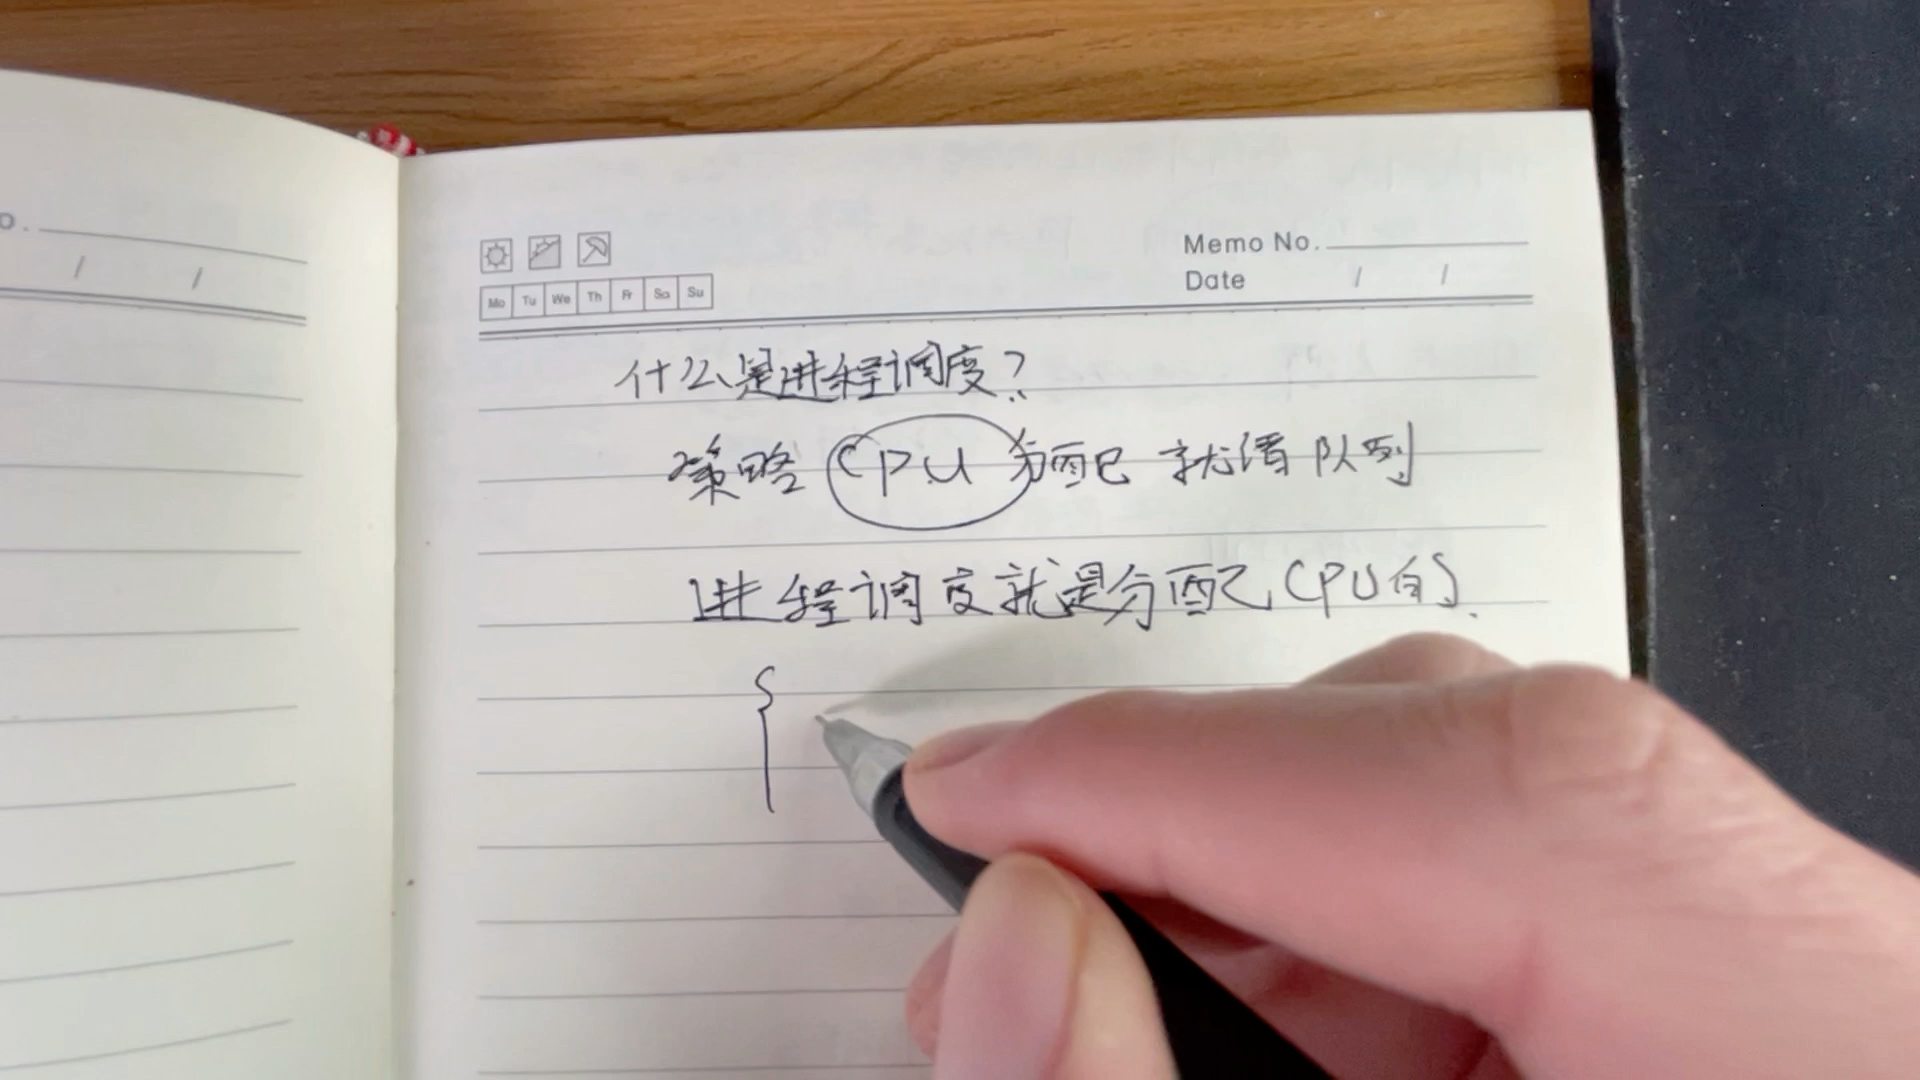 o.
/ /
Memo No.
Date / /
Mo Tu We Th Fr Sa Su
什么是进程调度?
策略 CPU 分配 就绪队列
进程调度就是分配CPU的.
{